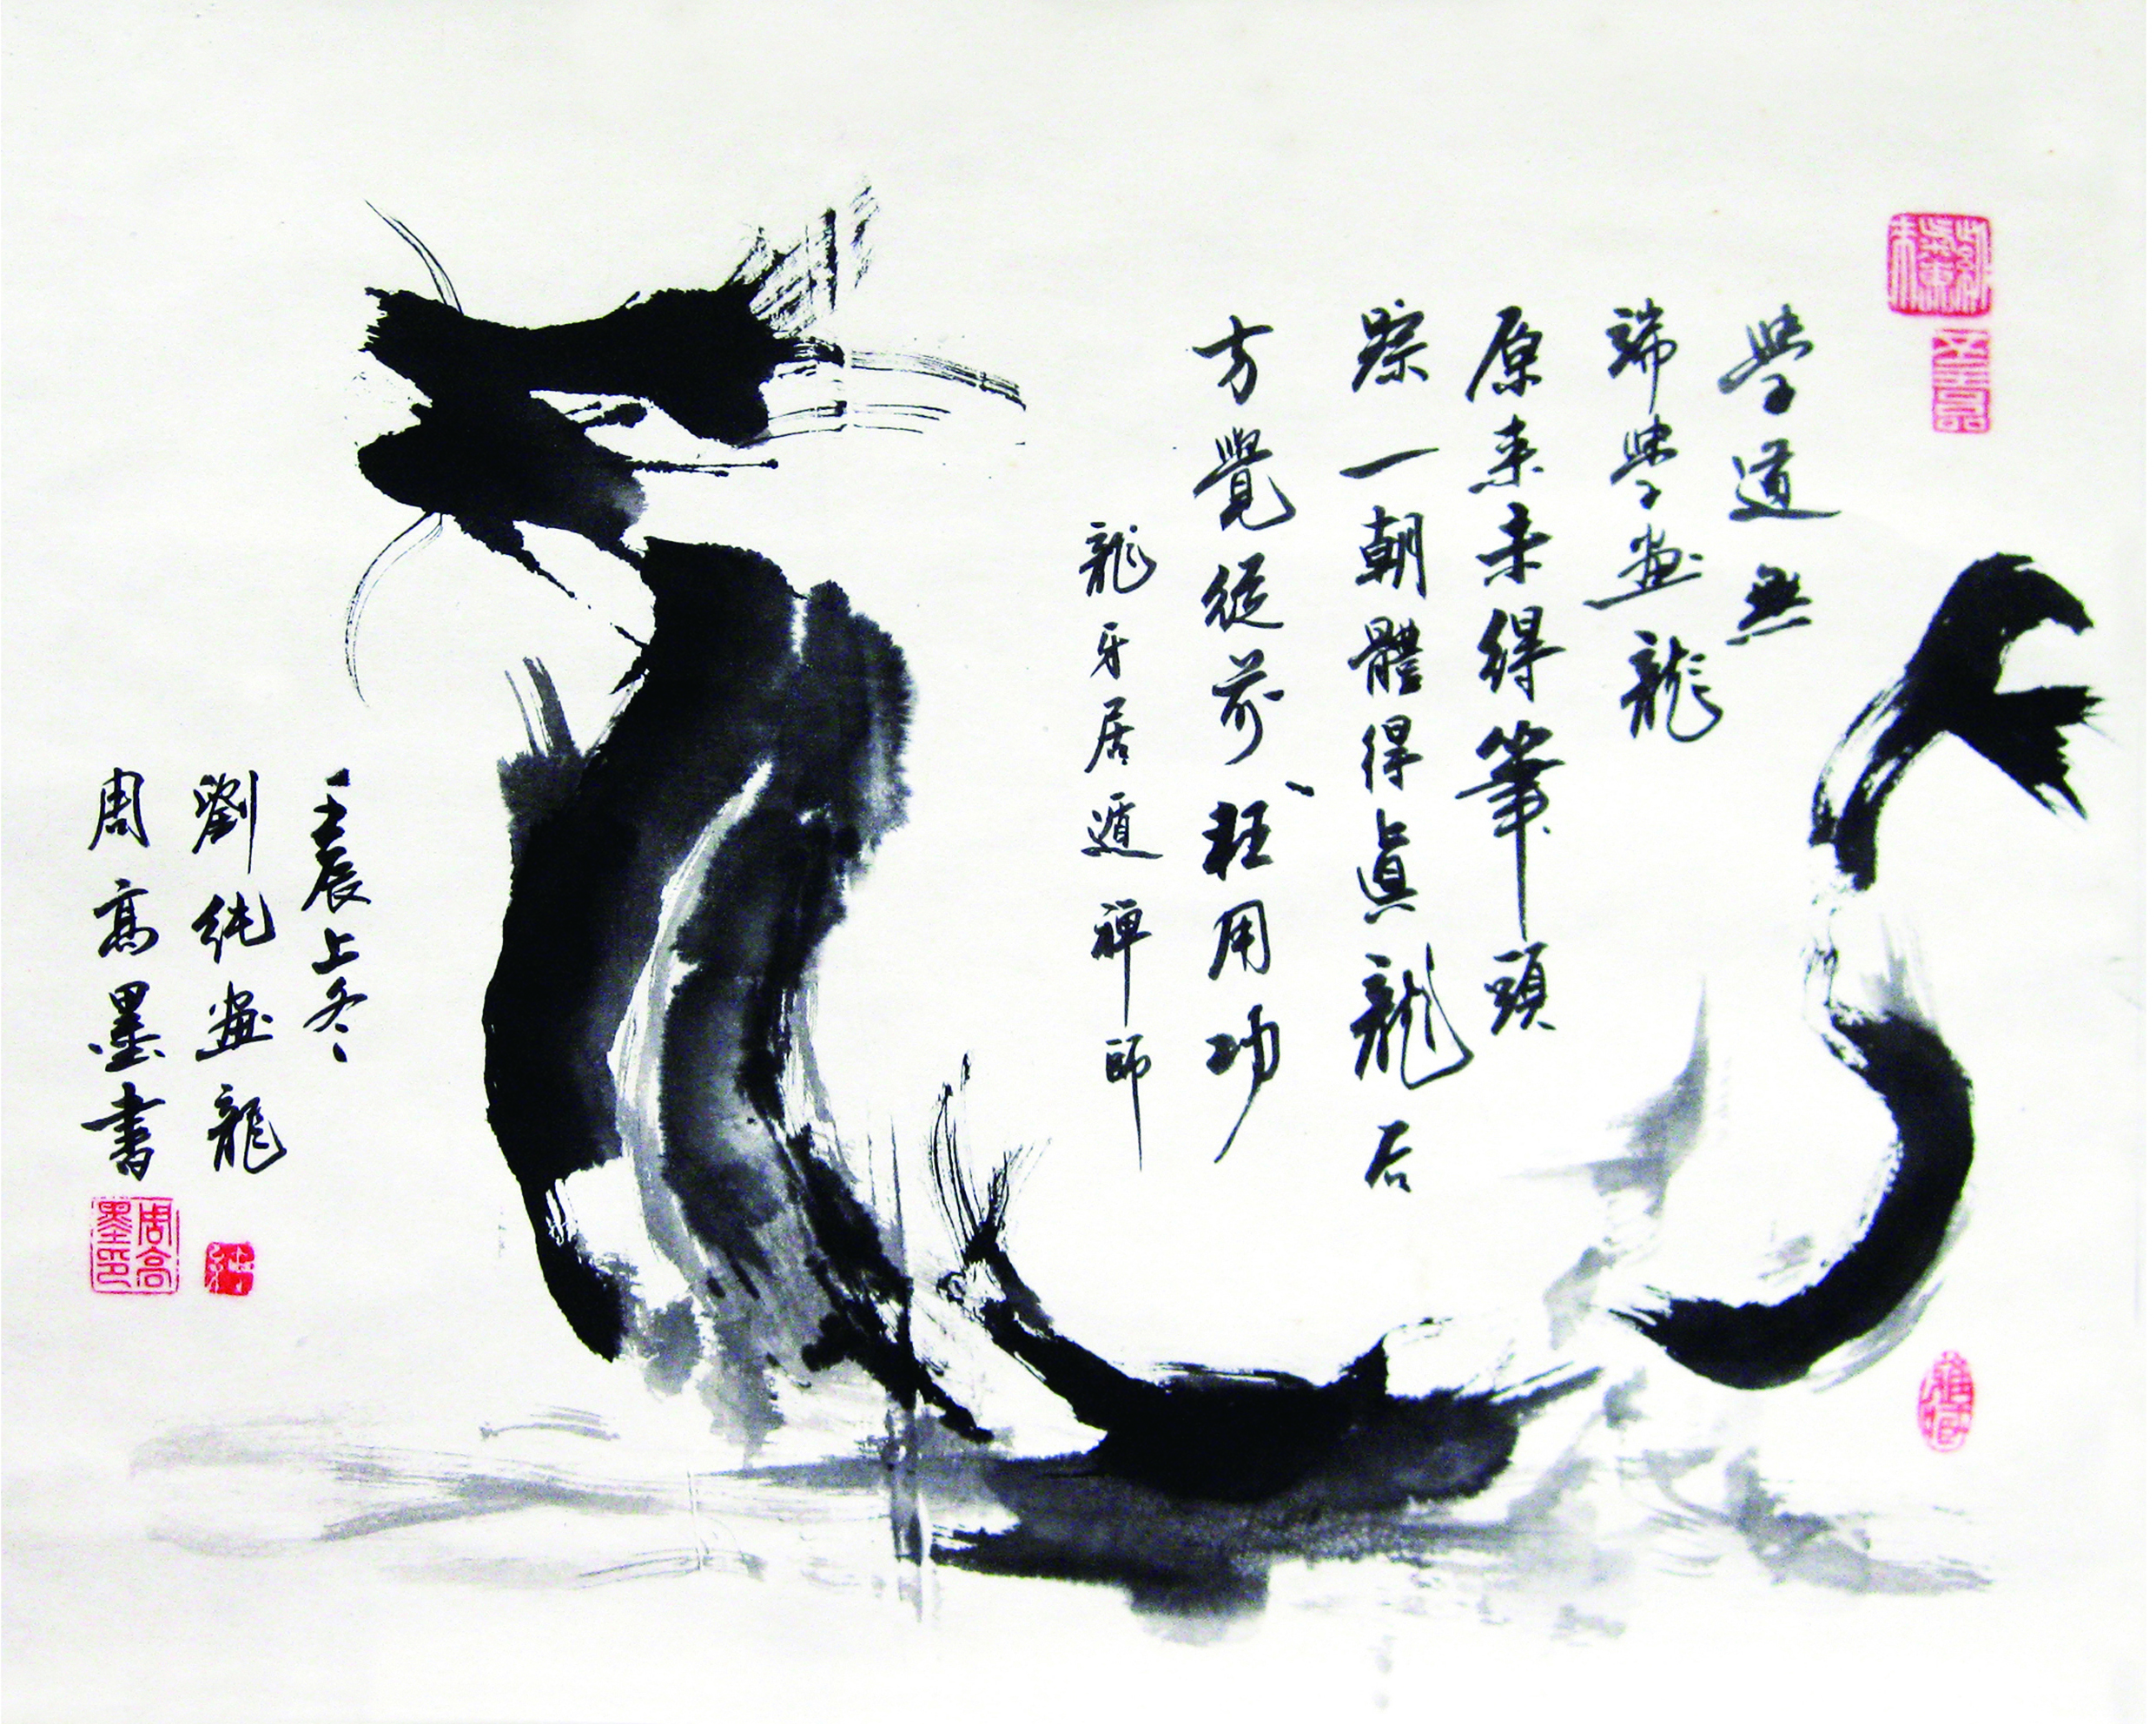 學道無
端學畫龍
原来未得筆頭
踪一朝體得眞龍后
方覺從前枉用功
龍牙居遁禅師
壬辰上冬
劉純畫龍
周高墨書
周高墨印